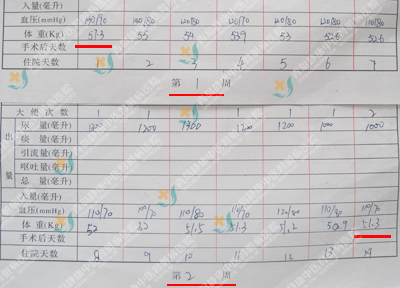 入量(毫升)
血压(mmHg) 140/70 140/80 120/80 120/70 120/80 120/80 110/80
体 重(Kg) 57.3 55 54 53.9 53 52.6 52.6
手术后天数
住院天数 1 2 3 4 5 6 7
第 1 周
大便次数 1 1 1 1 1 1 2
出量
尿 量(毫升) 1300 1200 1300 1200 1200 1000 1000
痰 量(毫升)
引流量(毫升)
呕吐量(毫升)
总 量(毫升)
入量(毫升)
血压(mmHg) 110/70 100/70 110/80 110/70 120/80 110/80 110/70
体 重(Kg) 52 52 51.5 51.3 51.2 50.9 51.3
手术后天数
住院天数 8 9 10 11 12 13 14
第 2 周